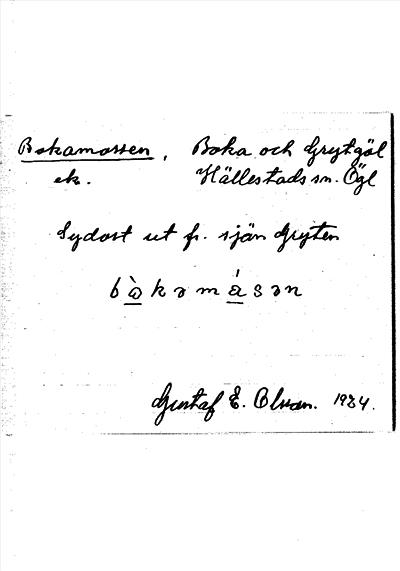 Bokamossen, Boka och Grytgöl
ek. Hällestads sn. Ögl
Sydost ut fr. sjön Gryten
b ɷ̀ k ə m á s ə n
Gustaf E. Olsson. 1934.